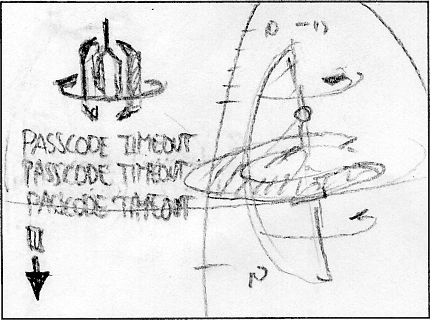 PASSCODE TIMEOUT
PASSCODE TIMEOUT
PASSCODE TIMEOUT